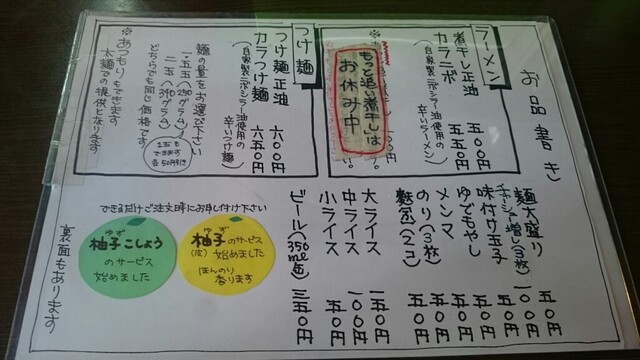 お品書き
ラーメン
煮干し正油 五〇〇円
カラニボ 五五〇円
(自家製ニボシラー油使用の
辛いラーメン)
もっと追い煮干しは
お休み中
つけ麺
つけ麺正油 六〇〇円
カラつけ麺 六五〇円
(自家製ニボシラー油使用の
辛いつけ麺)
麺の量をお選び下さい
一.五玉(290グラム)
二玉(390グラム)
どちらでも同じ価格です
1玉も
できます
各50円引き
※あつもりもできます
太麺での提供となります
麺大盛り 五〇円
チャーシュー増し(3枚) 一〇〇円
味付け玉子 五〇円
ゆでもやし 五〇円
メンマ 五〇円
のり(3枚) 五〇円
麩(2コ) 五〇円
大ライス 一五〇円
中ライス 一〇〇円
小ライス 五〇円
ビール(350ml缶) 三五〇円
できるだけご注文時にお申し付け下さい
ゆず
柚子のサービス
(皮)始めました
ほんのり
香ります
ゆず
柚子こしょう
のサービス
始めました
裏面もあります